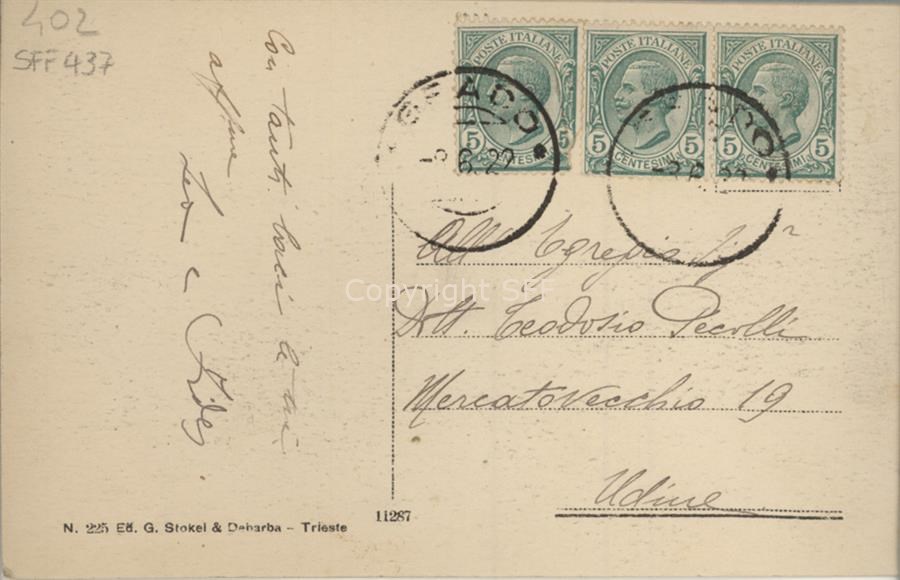 402
SFF 437
Con tanti baci le più
affme
Lea e Fides
POSTE ITALIANE
5 CENTESIMI 5
POSTE ITALIANE
5 CENTESIMI 5
POSTE ITALIANE
5 CENTESIMI 5
GRADO
-8.6.22
GRADO
All' Egregio Sigr
Dott. Teodosio Pecolli
Mercatovecchio 19
Udine
Copyright SFF
N. 225 Ed. G. Stokel & Debarba – Trieste
11287